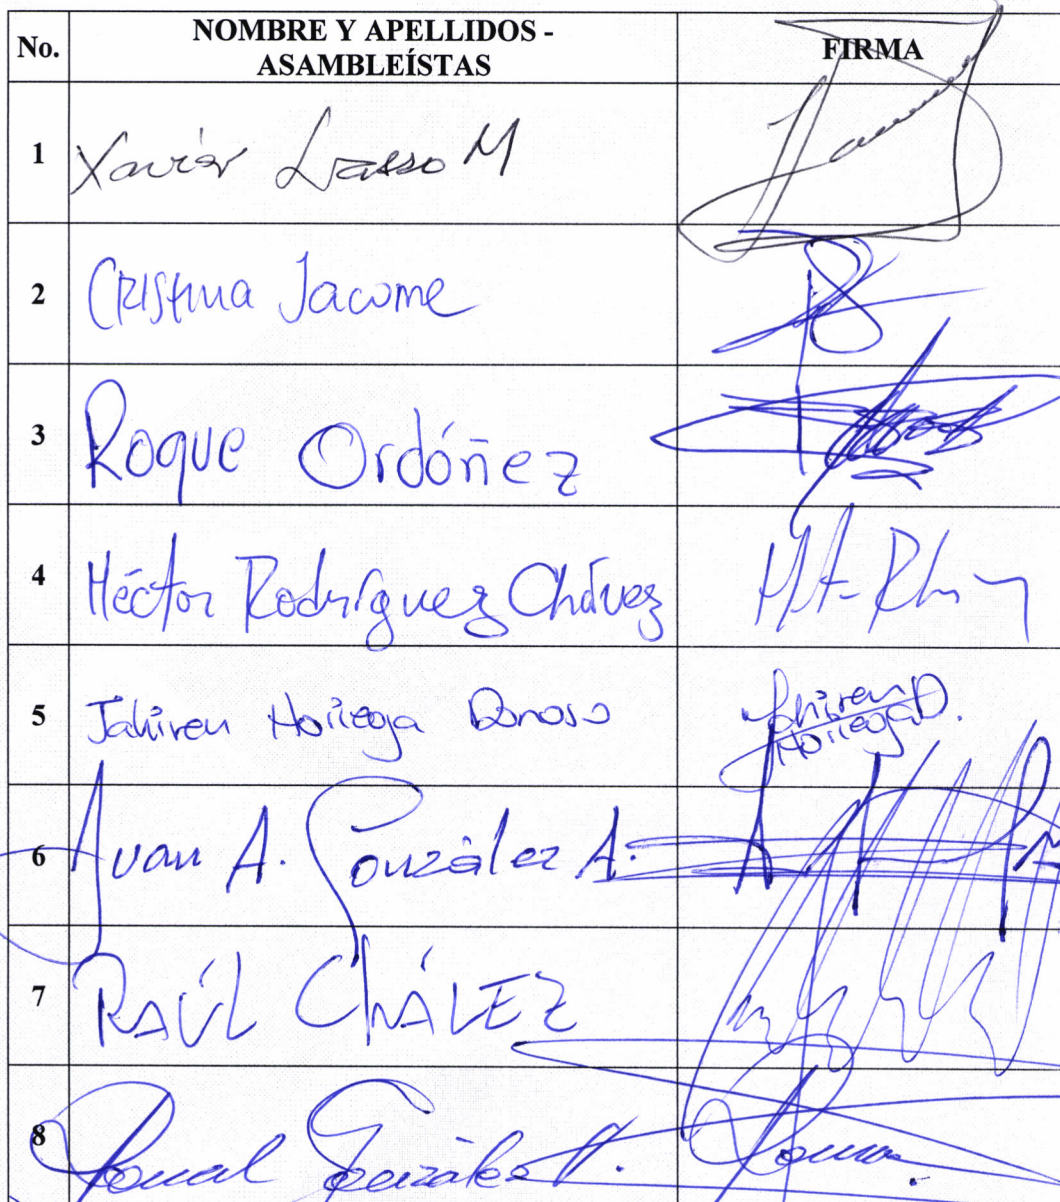 No. NOMBRE Y APELLIDOS - FIRMA
ASAMBLEÍSTAS
1 Xavier Lasso M
2 CRIStina Jacome
3 Roque Ordóñez
4 Héctor Rodríguez Chávez
5 Jahiren Noriega Donoso Jahiren D.
Noriega
6 Juan A. González A.
7 RAÚL CHÁVEZ
8 González